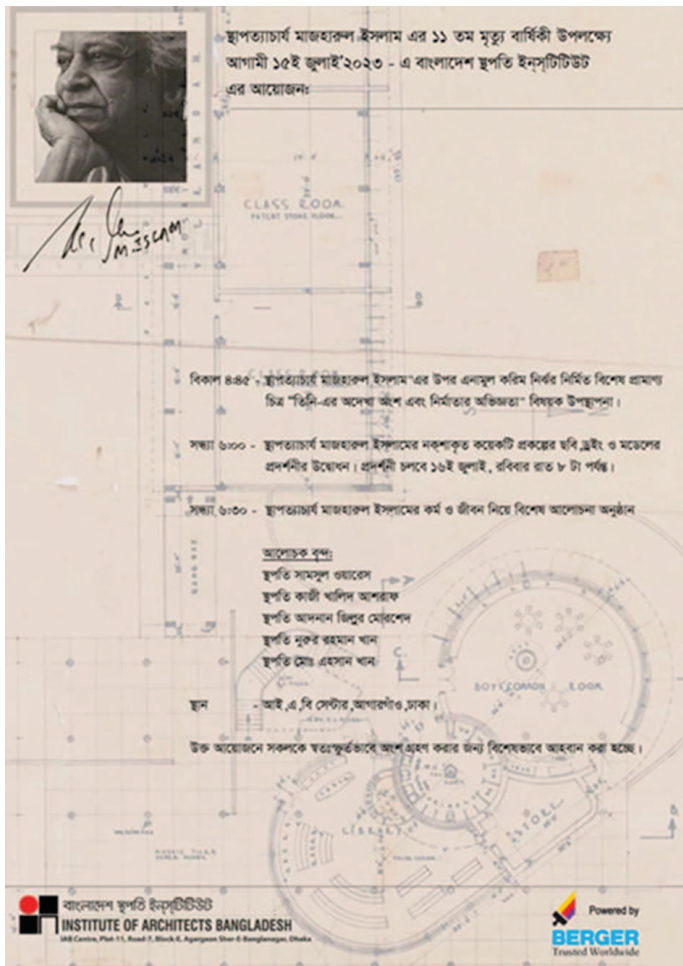 স্থাপত্যাচার্য মাজহারুল ইসলাম এর ১১ তম মৃত্যু বার্ষিকী উপলক্ষ্যে
আগামী ১৫ই জুলাই'২০২৩ - এ বাংলাদেশ স্থপতি ইন্‌স্‌টিটিউট
এর আয়োজনঃ
M. ISLAM
CLASS ROOM
PATENT STONE FLOOR
CLASS ROOM
বিকাল ৪:৪৫ - স্থাপত্যাচার্য মাজহারুল ইসলাম"এর উপর এনামুল করিম নির্ঝর নির্মিত বিশেষ প্রামাণ্য
চিত্র "তিনি-এর অদেখা অংশ এবং নির্মাতার অভিজ্ঞতা" বিষয়ক উপস্থাপনা।
সন্ধ্যা ৬:০০ - স্থাপত্যাচার্য মাজহারুল ইসলামের নক্শাকৃত কয়েকটি প্রকল্পের ছবি,ড্রইং ও মডেলের
প্রদর্শনীর উদ্বোধন। প্রদর্শনী চলবে ১৬ই জুলাই, রবিবার রাত ৮ টা পর্যন্ত।
সন্ধ্যা ৬:৩০ - স্থাপত্যাচার্য মাজহারুল ইসলামের কর্ম ও জীবন নিয়ে বিশেষ আলোচনা অনুষ্ঠান
আলোচক বৃন্দ:
স্থপতি সামসুল ওয়ারেস
স্থপতি কাজী খালিদ আশরাফ
স্থপতি আদনান জিল্লুর মোরশেদ
স্থপতি নুরুর রহমান খান
স্থপতি মোঃ এহসান খান
BOYS COMMON ROOM
স্থান - আই,এ,বি সেন্টার,আগারগাঁও,ঢাকা।
উক্ত আয়োজনে সকলকে স্বতঃস্ফূর্তভাবে অংশগ্রহণ করার জন্য বিশেষভাবে আহবান করা হচ্ছে।
LIBRARY
বাংলাদেশ স্থপতি ইন্‌স্‌টিটিউট
INSTITUTE OF ARCHITECTS BANGLADESH
IAB Centre, Plot-11, Road-7, Block-E, Agargaon Sher-E-Banglanagar, Dhaka
Powered by
BERGER
Trusted Worldwide